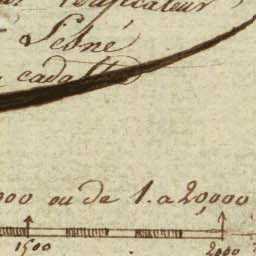 Vérificateur
Lesné
cadastre
000 ou de 1. a 20,000
1500 2000